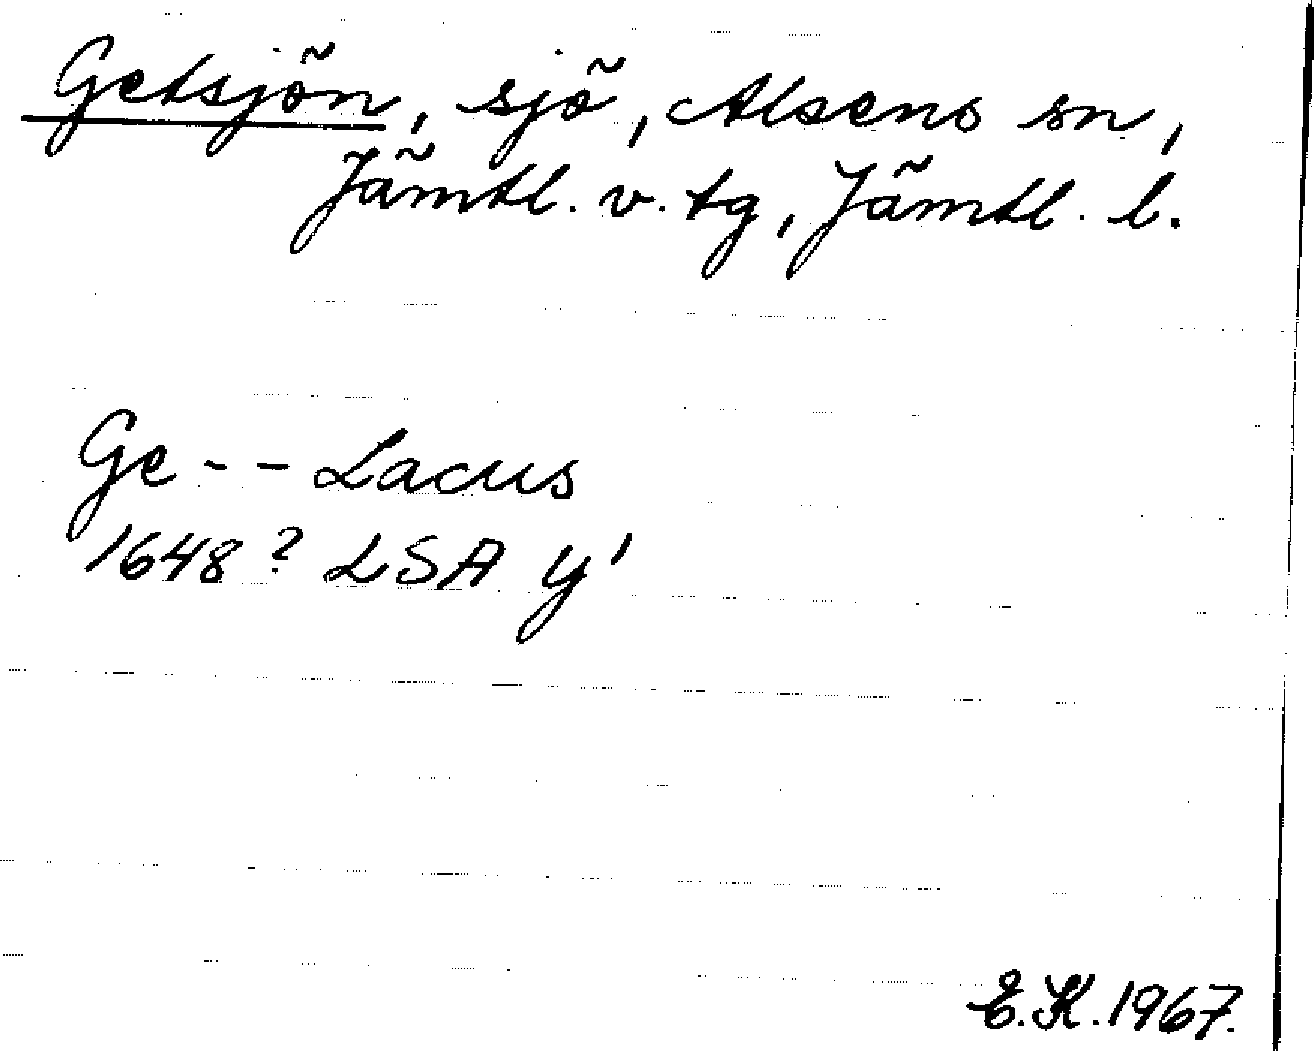 Getsjön, sjö, Alsens sn,
Jämtl. v. tg, Jämtl. l.
Ge - - Lacus
1648? LSA Y'
E.K. 1967.